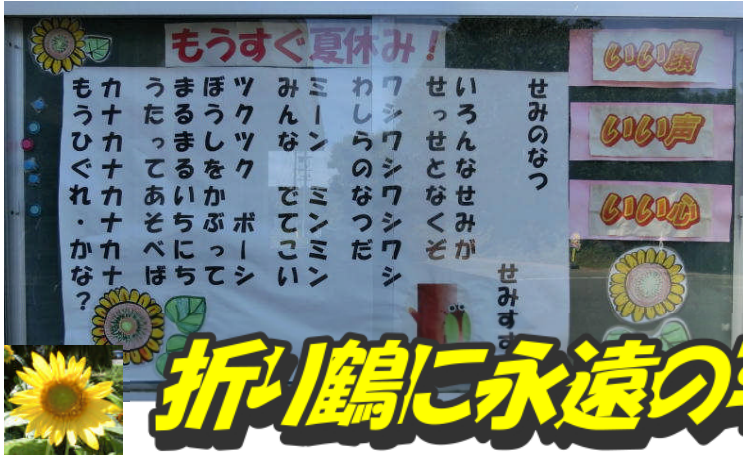 もうすぐ夏休み！
いい顔
いい声
いい心
せみのなつ
せみすず
いろんなせみが
せっせとなくぞ
ワシワシワシワシ
わしらのなつだ
ミーン　ミンミン
みんな　でてこい
ツクツク　ボーシ
ぼうしをかぶって
まるまるいちにち
うたってあそべば
カナカナカナカナ
もうひぐれ・かな？
折り鶴に永遠の